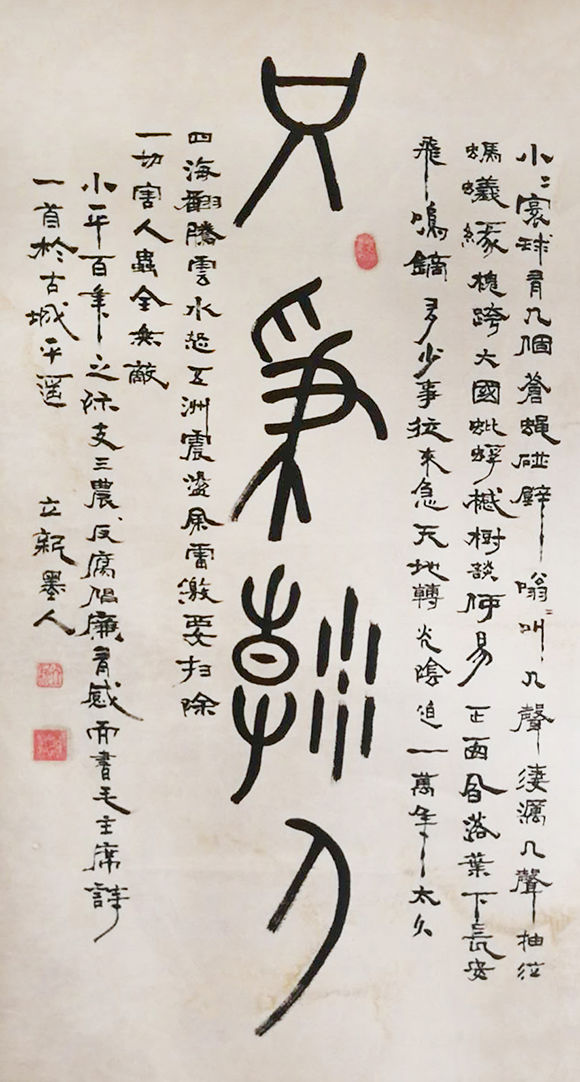 小〻寰球有几個蒼蝇碰壁嗡〻叫几聲淒厲几聲抽泣
螞蟻緣槐跨大國蚍蜉撼樹談何易正西風落葉下長安
飛鳴鏑多少事從來急天地轉光陰迫一萬年太久
只爭朝夕
四海翻騰雲水怒五洲震盪風雷激要扫除
一切害人蟲全無敵
小平百年之际支三農、反腐倡廉有感而書毛主席詩
一首於古城平遥 立新墨人